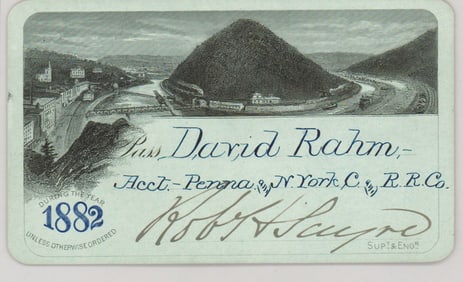 Pass, David Rahm.-
Acct.- Penna and N. York C. and R.R. Co.
DURING THE YEAR
1882
UNLESS OTHERWISE ORDERED
Robt H Sayre
SUPT. & ENGR.